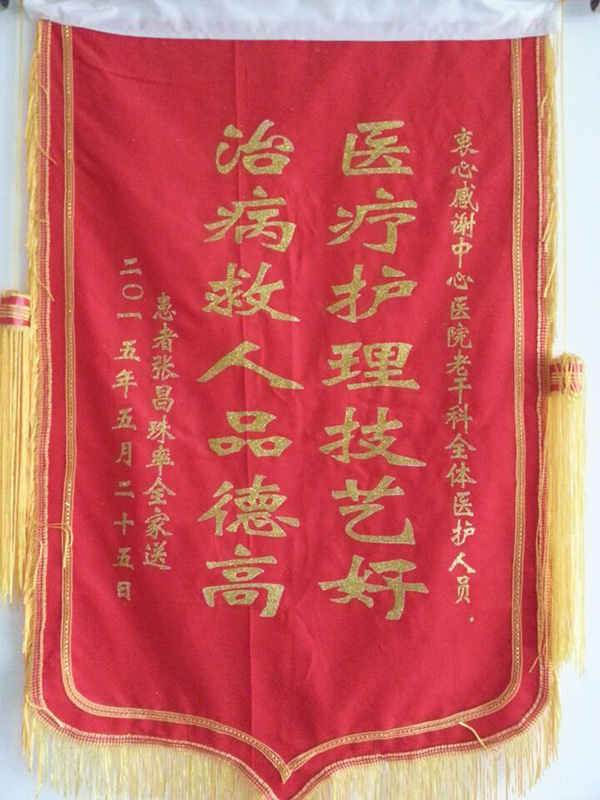 衷心感谢中心医院老干科全体医护人员.
医疗护理技艺好
治病救人品德高
患者张昌珠率全家送
二〇一五年五月二十五日